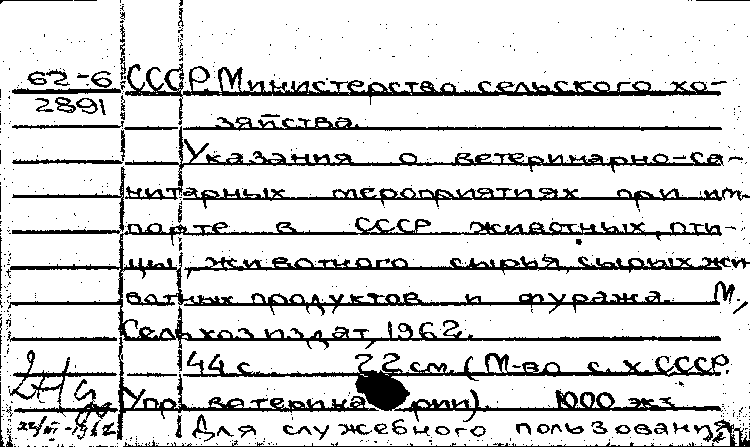 62-6 СССР. Министерство сельского хо-
2891
зяйства.
Указания о ветеринарно-са-
нитарных мероприятиях при им-
порте в СССР животных, пти-
цы, животного сырья, сырых жи-
вотных продуктов и фуража. М.,
Сельхозиздат, 1962.
44 с. 22 см. (М-во с. х. СССР.
Упр. ветеринарии). 1000 экз.
Для служебного пользования